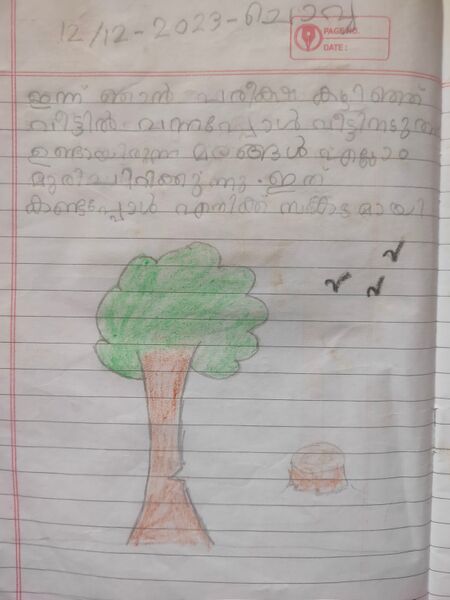 12/12-2023-ചൊവ്വ
PAGE NO.
DATE:
ഇന്ന് ഞാൻ പരീക്ഷ കഴിഞ്ഞ്
വീട്ടിൽ വന്നപ്പോൾ വീട്ടിനടുത്ത
ഉണ്ടായിരുന്ന മരങ്ങൾ എല്ലാം
മുരിച്ചിരിക്കുന്നു. ഇത്
കണ്ടപ്പോൾ എനിക്ക് സങ്കടമായി